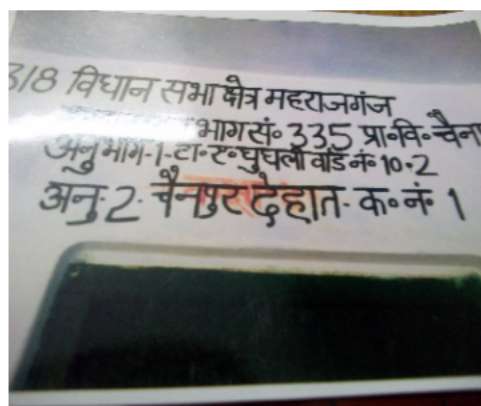 318 विधान सभा क्षेत्र महराजगंज
भाग सं० 335 प्रा०वि०चैन
अनुभाग-1-टा०ए०घुघली वार्ड नं० 10.2
अनु-2- चैनपुर देहात- क०नं० 1